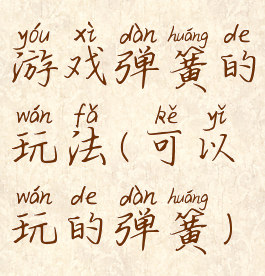 yóu xì dàn huáng de
游戏弹簧的
wán fǎ kě yǐ
玩法(可以
wán de dàn huáng
玩的弹簧)